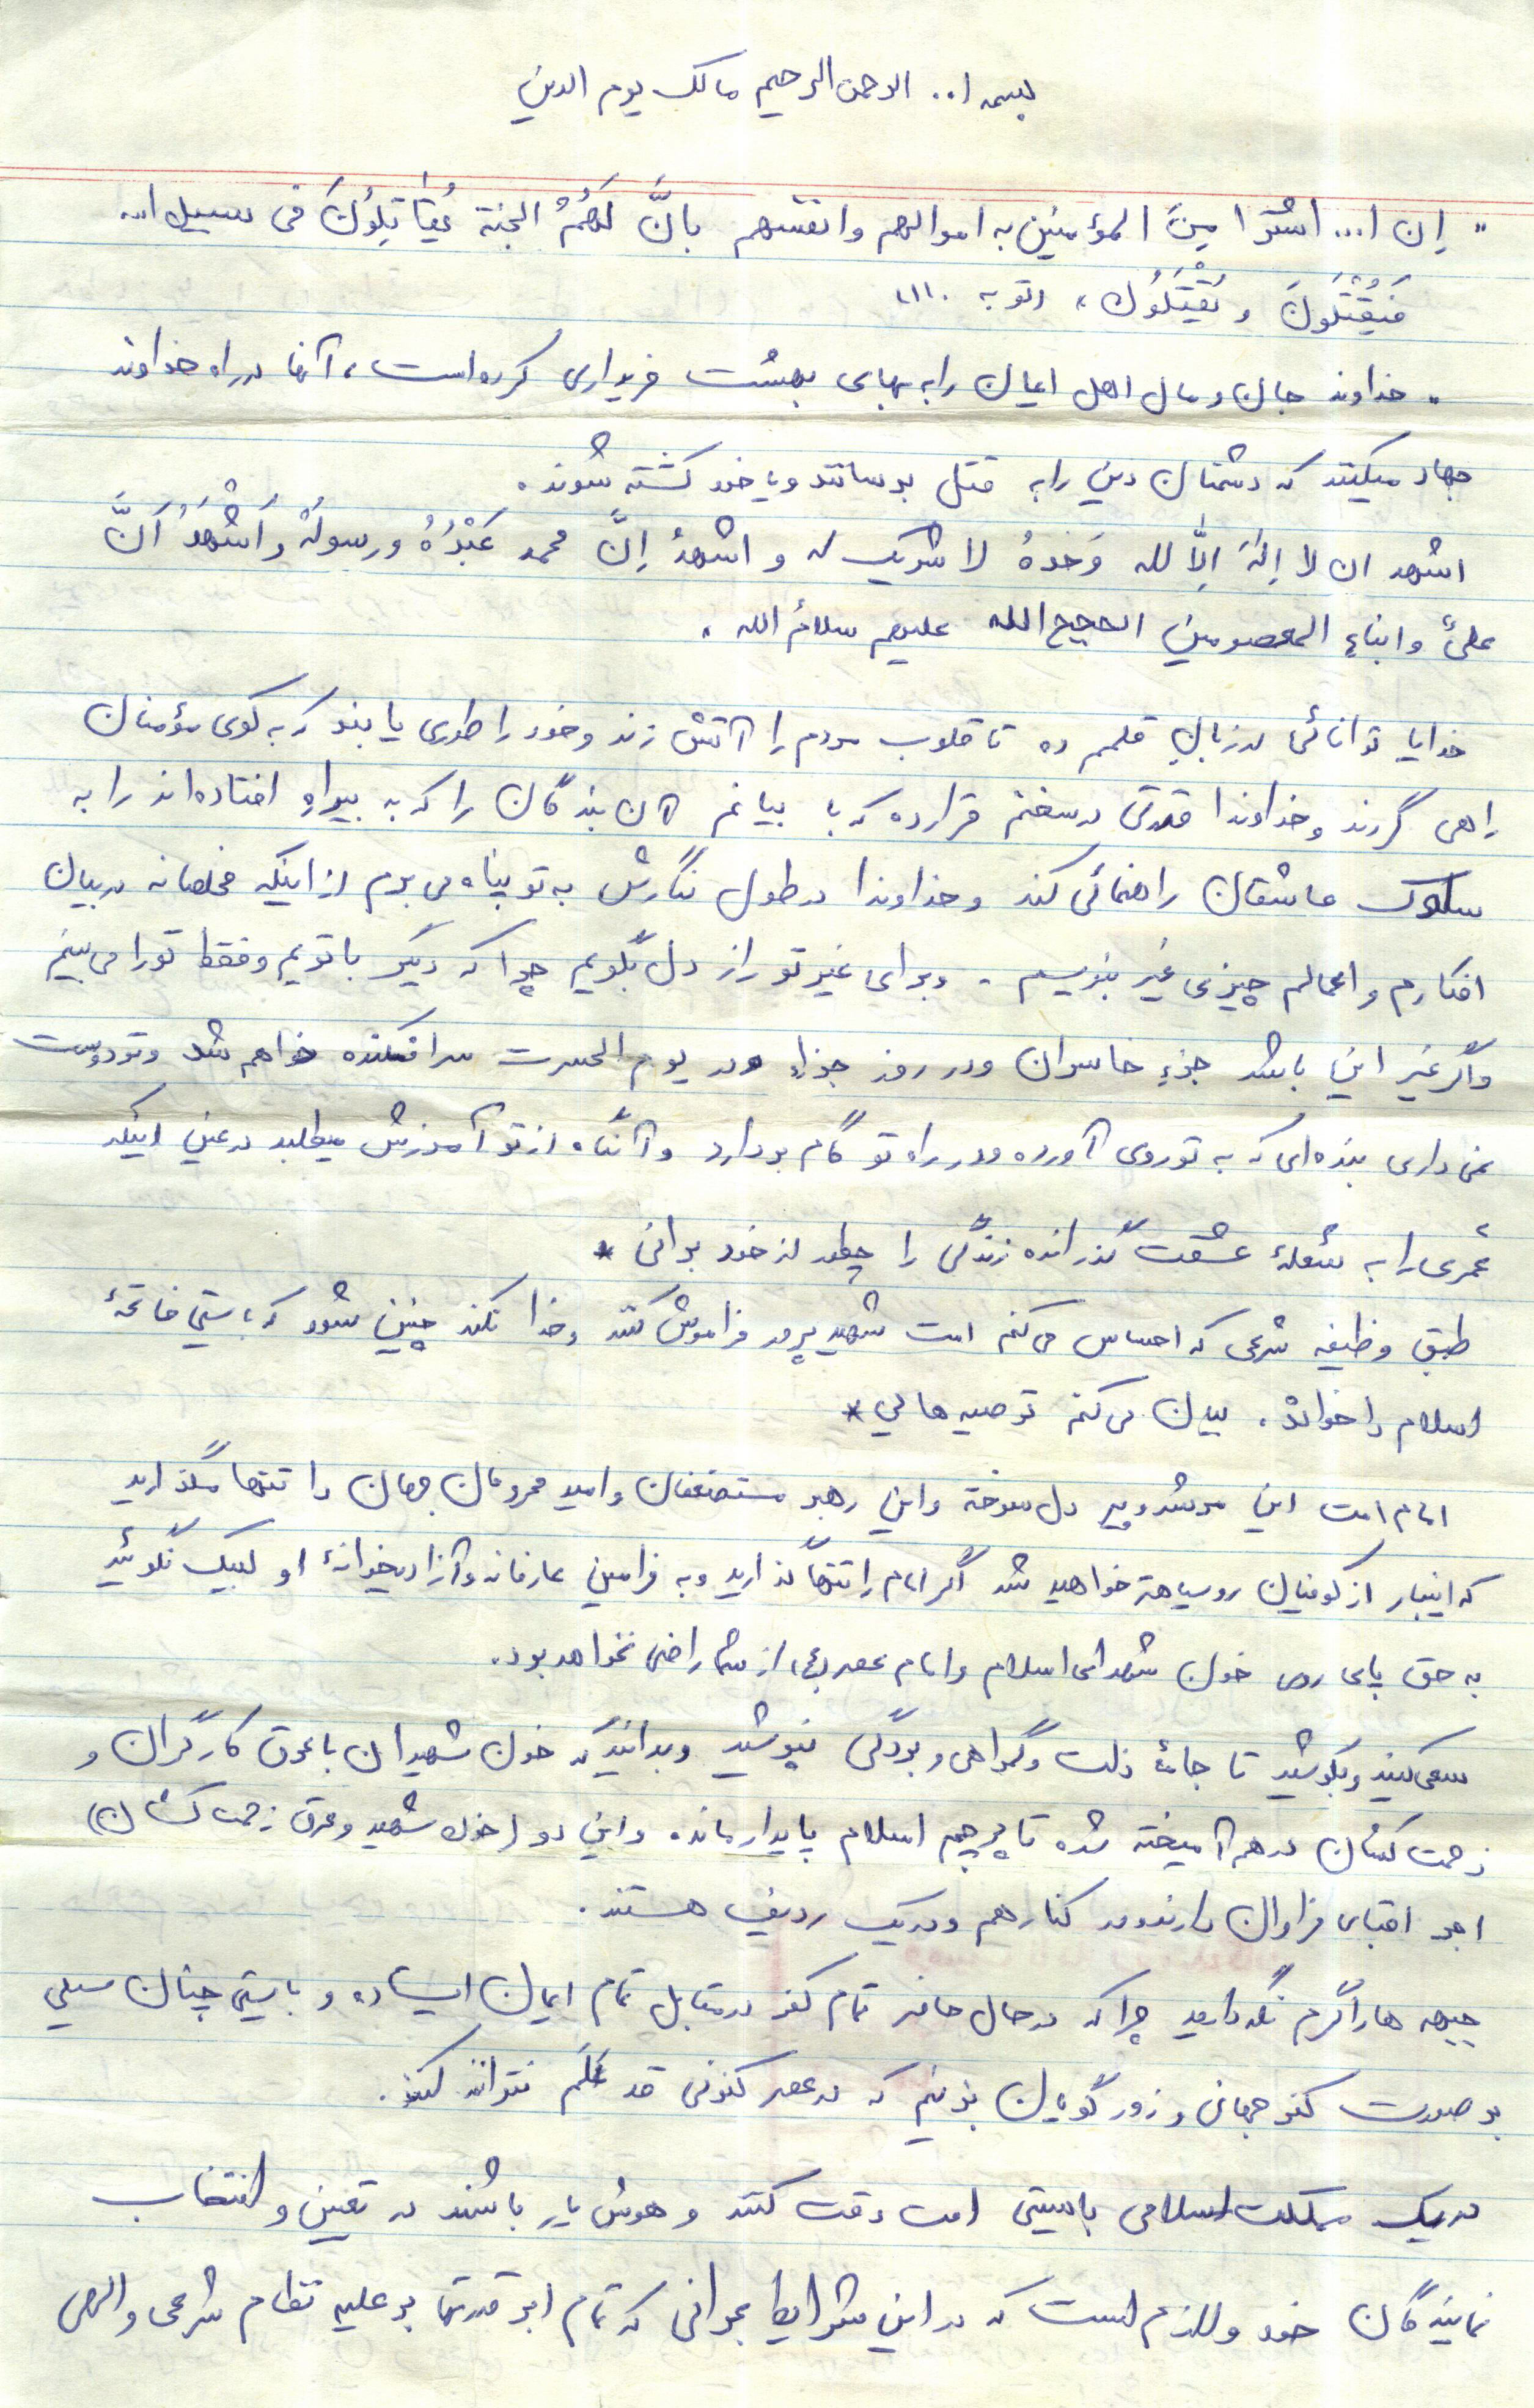 بسمه ا.. الرحمن الرحیم مالک یوم الدین
" اِن ا... اشتَرا مِنَ المؤمنین به اموالهم وانفسهم باَنَّ لَهُمُ الجنة یُقاتِلوُنَ فی سبیل ا...
فَیَقْتُلَونَ و یُقْتَلَوُن " (توبه ۱۱۰)
" خداوند جان و مال اهل ایمان را به بهای بهشت خریداری کرده است، آنها در راه خداوند
جهاد میکنند که دشمنان دین را به قتل برسانند و یا خود کشته شوند .
اشهد ان لا اِلهَ اِلاَّ لله وَحْدهُ لا شریک له و اشهدُ اِنَّ محمد عَبْدُهُ و رسولَهُ و اَشْهَدُ اَنَّ
علیً و ابناءِ المعصومین الحجج الله علیهم سلامُ الله .
خدایا توانائی در زبانِ قلمم ده تا قلوب مردم را آتش زند و خود را طوری یابند که به کوی مؤمنان
راهی گردند و خداوندا قدرتی در سخنم قرار ده که با بیانم آن بندگان را که به بیراه افتاده‌اند را به
سلوک عاشقان راهنمائی کند و خداوندا در طول نگارش به تو پناه می‌برم از اینکه مخلصانه در بیان
افکارم و اعمالم چیزی غیر بنویسم . و برای غیر تو راز دل بگویم چرا که دیگر با تویم و فقط تو را می‌بینم
و اگر غیر این باشد جزءِ خاسران و در روز جزاء و در یوم الحسرت سرافکنده خواهم شد و تو دوست
نمی داری بنده‌ای که به تو روی آورده و در راه تو گام بردارد و آنگاه از تو آمرزش میطلبد در عین اینکه
عُمری را به شعلهٔ عشقت گذرانده زندگی را چطور از خود برانی *
طبق وظیفه شرعی که احساس می‌کنم امت شهید پرور فراموش نکنند و خدا نکند چنین شود که بایستی فاتحهٔ
اسلام را خواند . بیان می‌کنم توصیه هایی *
امام امت این مرشد و پیر دل سوخته و این رهبر مستضعفان و امید محرومان جهان را تنها مگذارید
که اینبار از کوفیان روسیاهتر خواهید شد اگر امام را تنها گذارید و به فرامین عارفانه و آزادیخوانهٔ او لبیک نگوئید
به حق پای روی خون شهدای اسلام و امام عصر (عج) از شما راضی نخواهد بود .
سعی کنید و بکوشید تا جامهٔ ذلت و گمراهی و بردگی نپوشید و بدانید که خون شهیدان با عرق کارگران و
زحمت کشان در هم آمیخته شده تا پرچم اسلام پایدار مانده و این دو (خون شهید و عرق زحمت کشان)
اجر اقبای فراوان دارند و در کنار هم و در یک ردیف هستند .
جبهه ها را گرم نگه دارید چرا که در حال حاضر تمام کفر در مقابل تمام ایمان ایستاده و بایستی چنان سیلی
بر صورت کفر جهانی و زورگویان بزنیم که در عصر کنونی قد عَلَم نتواند کند .
در یک مملکت اسلامی بایستی امت دقت کنند و هوش یار باشند در تعیین و انتخاب
نمایندگان خود و لازم است که در این شرایط بحرانی که تمام ابرقدرتها بر علیه نظام شرعی و الهی